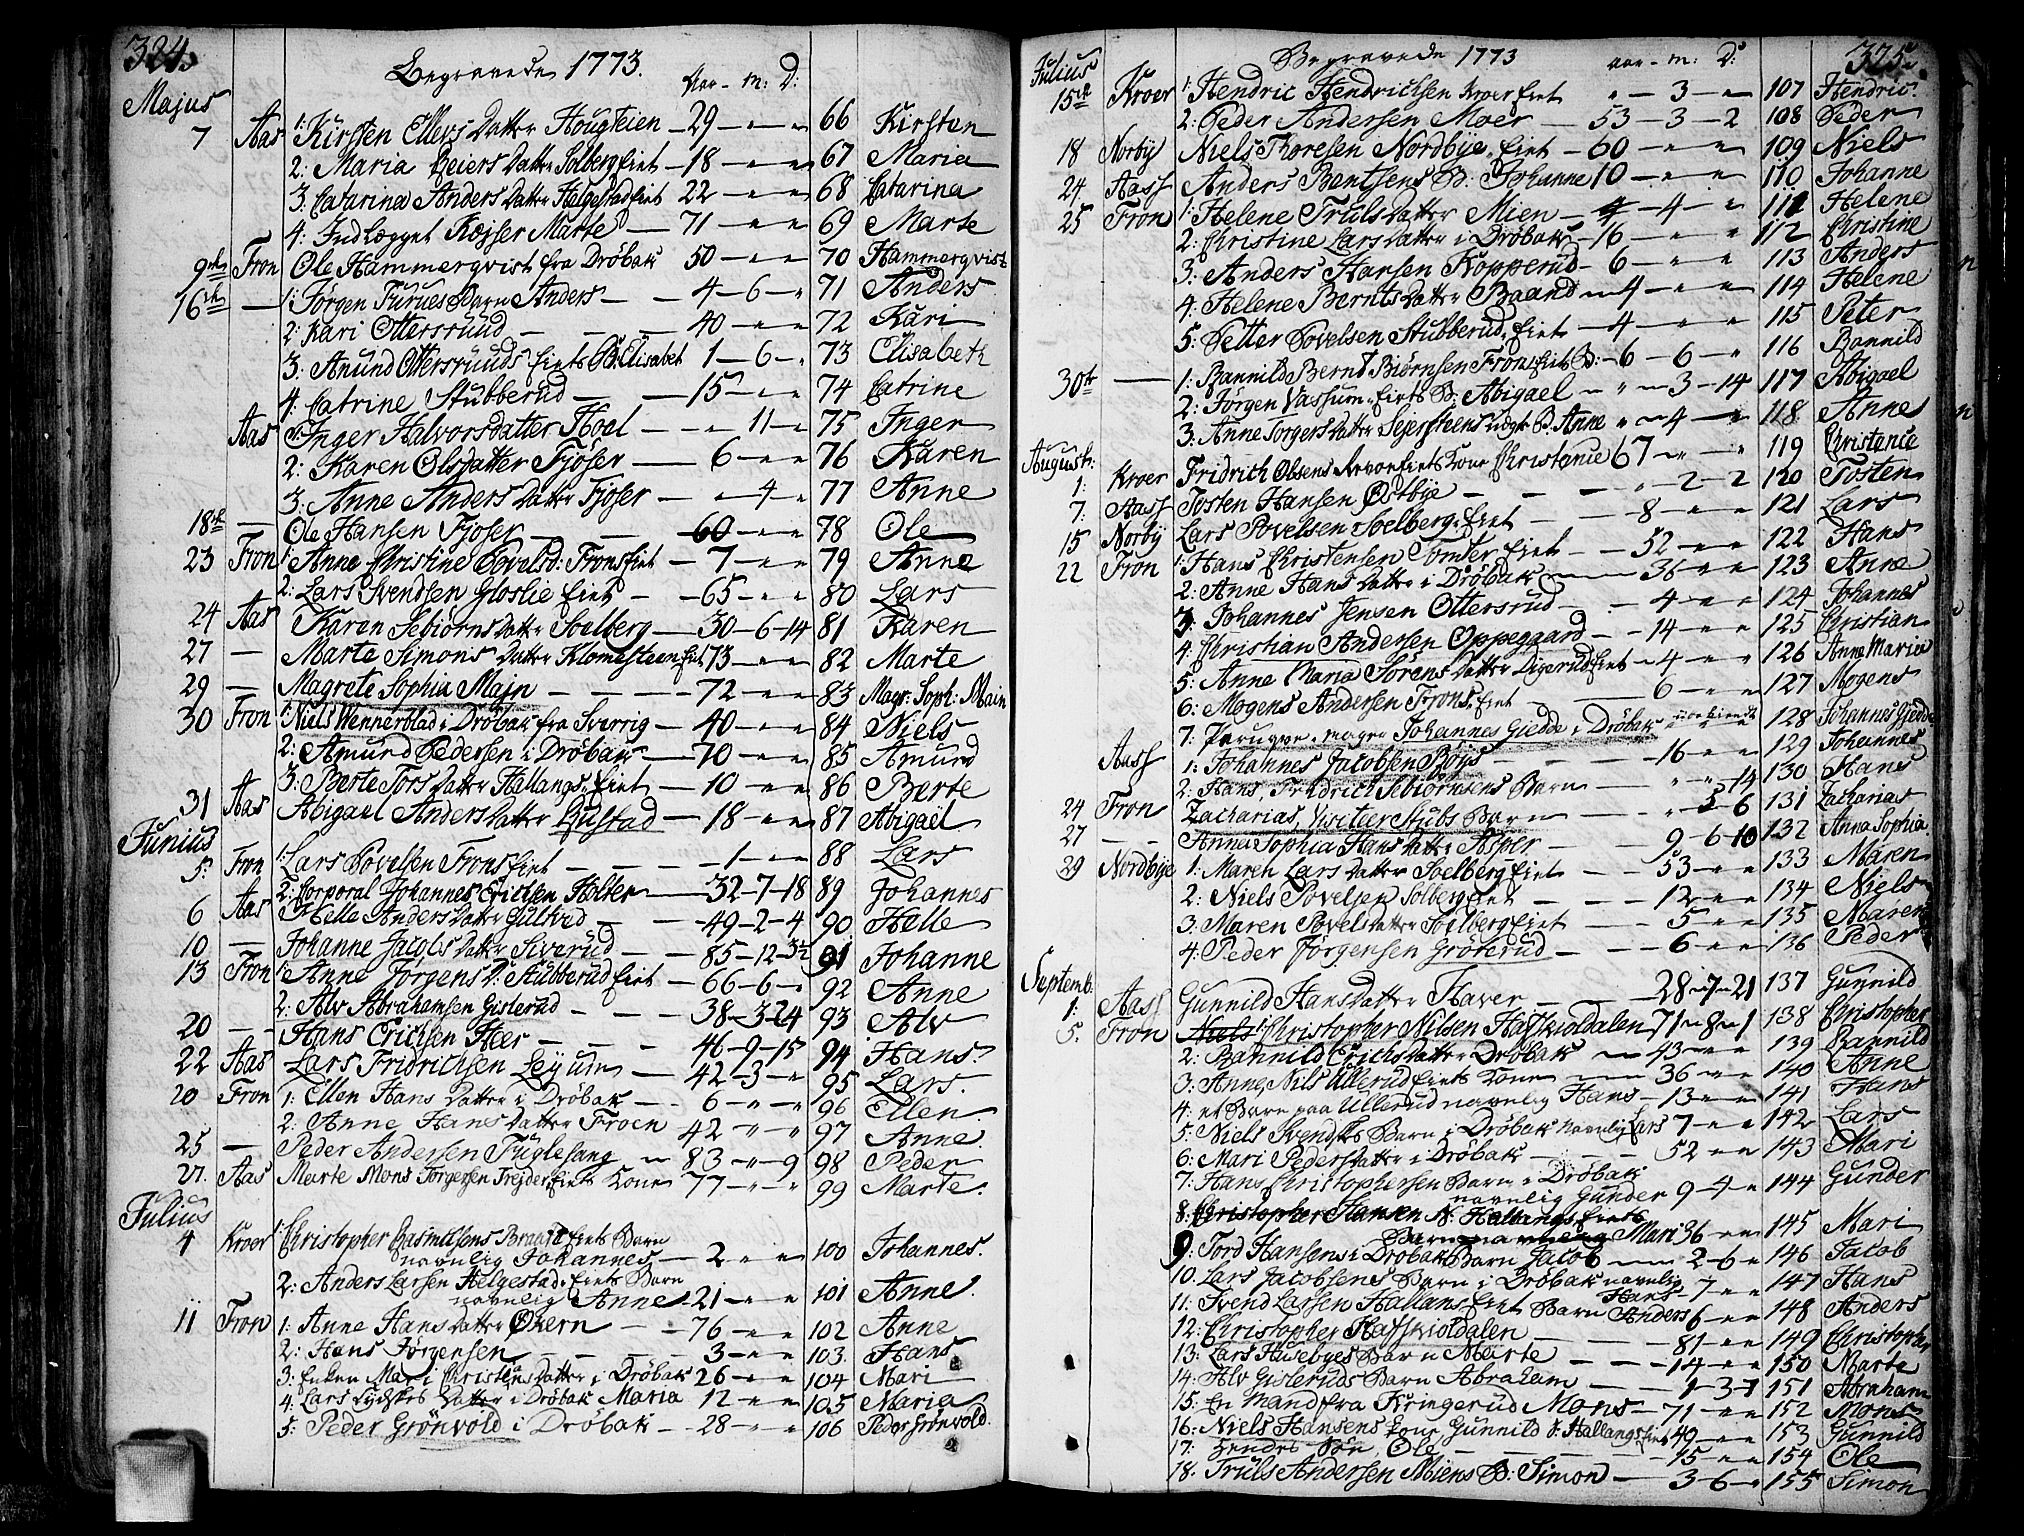 324.
Begravede 1773.
Aar - M: D:
Majus
7 Aas 1: Kirsten Ellers Datter Hougteien - 29 - „ - „ 66 Kirsten
2: Maria Peiers Datter Solberg Eiet - 18 - „ - „ 67 Maria
3: Catarina Anders Datter Helgestad Eiet 22 - „ - „ 68 Catarina
4: Indlægget Kojser Marte - 71 - „ - „ 69 Marte
9de Fron Ole Hammerqvist fra Drøbak 50 - „ - „ 70 Hammerqvist
16de — 1: Jørgen Furues Barn Anders - 4 - 6 - „ 71 Anders
2: Kari Ottersruud - 40 - „ - „ 72 Kari
3: Anund Ottersruuds Eiets B: Elisabet 1 - 6 - „ 73 Elisabeth
4: Catrine Stubberud - 15 - „ - „ 74 Catrine
Aas 1: Inger Halvorsdatter Hoel - „ - 11 - „ 75 Inger
2: Karen Olsdatter Fjøser - 6 - „ - „ 76 Karen
3: Anne Anders Datter Fjøser - „ - 4 - „ 77 Anne
18de — Ole Hansen Fjøser - 60 - „ - „ 78 Ole
23 Fron 1: Anne Christine Povelsd: Frons Eiet - 7 - „ - „ 79 Anne
2: Lars Svendsen Gloslie Eiet - 65 - „ - „ 80 Lars
24 Aas Karen Sebiørns Datter Soelberg - 30 - 6 - 14 81 Karen
27 — Marte Simons Datter Klomesteen Eiet 73 - „ - „ 82 Marte
29 — Magrete Sophia Majn - 72 - „ - „ 83 Magr: Soph: Main
30 Fron 1: Niels Wennerblad i Drøbak fra Sverrig - 40 - „ - „ 84 Niels
2: Amund Pedersen i Drøbak - 70 - „ - „ 85 Amund
3: Berte Tors Datter Hallangs Eiet - 10 - „ - „ 86 Berte
31 Aas Abigael Anders Datter Gustad - 18 - „ - „ 87 Abigaël
Junius
5. Fron 1: Lars Povelsen Frons Eiet - 1 - „ - „ 88 Lars
2: Corporal Johannes Erichsen Holter - 32 - 7 - 18 89 Johannes
6 Aas Helle Anders Datter Gultvid - 49 - 2 - 4 90 Helle
10 — Johanne Jacobs Datter Siverud - 85 - 12 - 3½ 91 Johanne
13 Fron 1: Anne Jørgens D: Stubberud Eiet - 66 - 6 - „ 92 Anne
2: Alv Abrahamsen Gislerud - 38 - 3 - 24 93 Alv
20 — Hans Erichsen Heer - 46 - 9 - 15 94 Hans.
22 Aas Lars Fridrichsen Lyum - 42 - 3 - „ 95 Lars.
20 Fron 1: Ellen Hans Datter i Drøbak - 6 - „ - „ 96 Ellen
2: Anne Hans Datter Froen 42 - „ - „ 97 Anne.
25 — Peder Andersen Fuglesang - 83 - „ - 9 98 Peder
27. Aas Marte Mons Jørgensen Trejder Eiet Kone 77 - „ - „ 99 Marte.
Julius
4 Kroer 1: Christopher Rasmussens Braate Eiet Barn
navnlig Johannes - 2 - „ - „ 100 Johannes.
2: Anders Larsen Helgestad Eiets Barn
navnlig Anne - 21 - „ - „ 101 Anne.
11 Fron 1: Anne Hans Datter Økern - 76 - „ - „ 102 Anne
2: Hans Jørgensen - 3 - „ - „ 103. Hans
3: Enken Mari Christens Datter i Drøbak 26 - „ - „ 104 Mari
4: Lars Lydskes Datter i Drøbak Maria 12 - „ - „ 105 Maria
5: Peder Grönvold i Drøbak - 28 - „ - „ 106 Peder Grönvold.
325.
Begravede 1773
Aar - M: D:
Julius
15de Kroer 1: Hendric Hendrichsen Kroer Eiet „ - 3 - „ 107 Hendric.
2: Peder Andersen Moer - 53 - 3 - 2 108 Peder
18 Norby Niels Thoresen Nordbye Eiet - 60 - „ - „ 109 Niels
24 Aass Anders Bentsens B: Johanne 10 - „ - „ 110 Johanne
25 Fron 1: Helene Truls Datter Mien - 4 - 4 - „ 111 Helene
2: Christine Lars Datter i Drøbak - 16 - „ - „ 112 Christine
3: Anders Hansen Kopperud - 6 - „ - „ 113 Anders
4: Helene Bernts Datter Baand - 4 - „ - „ 114 Helene
5: Petter Povelsen Stubberud Eiet - 4 - „ - „ 115 Peter
30te — 1: Rannild Bernt Biørnsen Frons Eiet B: - 6 - 6 - „ 116 Rannild
2: Jørgen Vassum Eiets B: Abigael - „ - 3 - 14 117 Abigael
3: Anne Torgers Datter Sejersteens B: Anne „ - 4 - „ 118 Anne
August:
1: Kroer Fridrich Olsens Eiets Kone Christence 67 - „ - „ 119 Christence
7. Aass Tosten Hansen Østbye - „ - 2 - 2 120 Tosten
15 Norby Lars Povelsen Soelberg Eiet - 8 - „ - „ 121 Lars
22 Fron 1: Hans Christensen Tomter Eiet - 52 - „ - „ 122 Hans
2: Anne Hans Datter i Drøbak - 36 - „ - „ 123 Anne
3: Johannes Jensen Ottersrud - 4 - „ - „ 124 Johannes
4: Christian Andersen Oppegaard - 14 - „ - „ 125 Christian
5: Anne Maria Sørens Datter Digerud Eiet - 4 - „ - „ 126 Anne Maria
6: Mogens Andersen Frons Eiet - 6 - „ - „ 127 Mogens
7: Paruqve mager Johannes Giedde i Drøbak 128 Johannes Giedde
Aass 1: Johannes Jacobsen Røys - 16 - „ - „ 129 Johannes
2: Hans, Fridrich Sebiørnsens Barn - „ - „ - 14 130 Hans
24 Fron Zacharias, Visiteer Stubs Barn - „ - 5 - 6 131 Zacharias
27 — Anna Sophia Hans Datter Asper - 9 - 6 - 10 132 Anna Sophia
29 Nordbye 1: Maren Lars Datter Soelberg Eiet - 53 - „ - „ 133 Maren
2: Niels Povelsen Solberg Eiet - 12 - „ - „ 134 Niels
3: Maren Povels Datter Soelberg Eiet - 5 - „ - „ 135 Maren
4: Peder Jørgensen Gröterud - 6 - „ - „ 136 Peder
Septemb.
1: Aass Gunnild Hans Datter Haver - 28 - 7 - 21 137 Gunnild
5. Fron Niels 1: Christopher Nilsen Haffskioldalen 71 - 8 - 1 138 Christopher
2: Rannild Erichs Datter Drøbak - 43 - „ - „ 139 Rannild
3: Anne, Nils Ullerud Eiets Kone - 36 - „ - „ 140 Anne
4: et Barn paa Ullerud navnlig Hans - 13 - „ - „ 141 Hans
5: Niels Svendskes Barn i Drøbak navnlig Lars 7 - „ - „ 142 Lars
6: Mari Peders Datter i Drøbak - 52 - „ - „ 143 Mari
7: Hans Christophersen Barn i Drøbak
navnlig Gunder 9 - 4 - „ 144 Gunder
8: Christopher Hansen N: Hallangs Eiets
Barn navnlig Mari 36 - „ - „ 145 Mari
9: Tord Hansens i Drøbak Barn Jacob - 2 - 6 - „ 146 Jacob
10. Lars Jacobsens Barn i Drøbak navnlig
Hans - 7 - „ - „ 147 Hans
11: Svend Lassen Hallans Eiet Barn Anders 6 - „ - „ 148 Anders
12: Christopher Haffskioldalen - 81 - „ - „ 149 Christopher
13: Lars Husebyes Barn Marte - 14 - „ - „ 150 Marte
14: Alv Gisleruds Barn Abraham - 1 - 3 - 1 151 Abraham
15: En Mand fra Kringerud Mons - 71 - „ - „ 152 Mons
16: Niels Hansens kone Gunnild S: Hallangs Eiet 49 - „ - „ 153 Gunnild
17: hendes Søn, Ole - 15 - „ - „ 154 Ole
18. Truls Andersen Miens B: Simon - 3 - 6 - „ 155 Simon